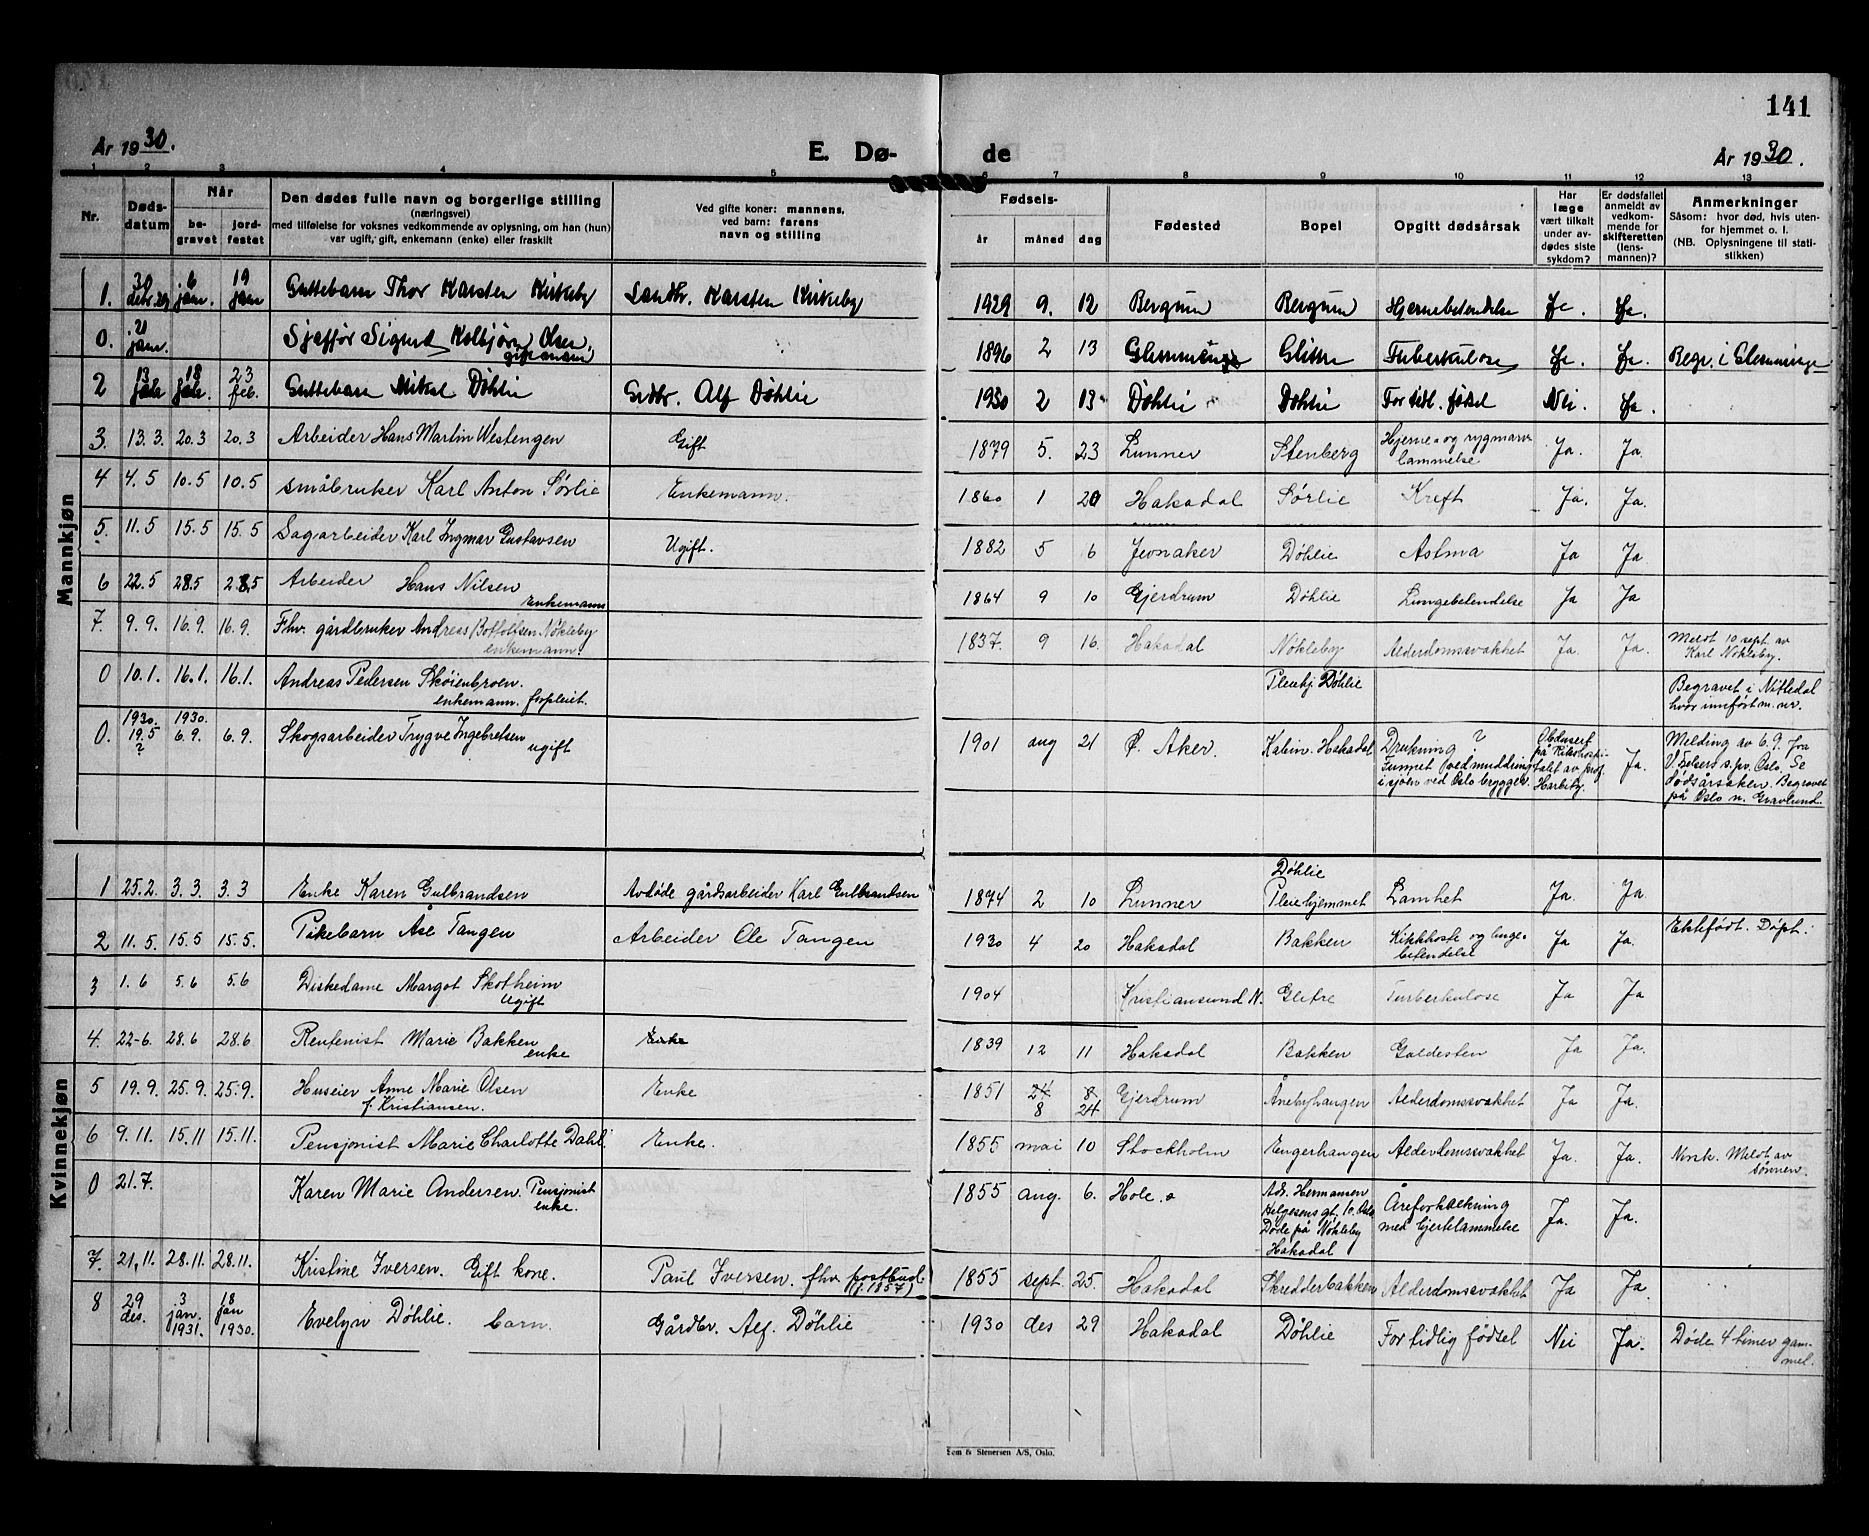 141
År 1930.
E. Dø-
de
År 1930.
1 2 3 4 5 6 7 8 9 10 11 12 13
Nr.
Døds-
datum
Når
be-
gravet
jord-
festet
Den dødes fulle navn og borgerlige stilling
(næringsvei)
med tilføielse for voksnes vedkommende av oplysning, om han (hun)
var ugift, gift, enkemann (enke) eller fraskilt
Ved gifte koner: mannens,
ved barn: farens
navn og stilling
Fødsels-
år
måned
dag
Fødested
Bopel
Opgitt dødsårsak
Har
læge
vært tilkalt
under av-
dødes siste
sykdom?
Er dødsfallet
anmeldt av
vedkom-
mende for
skifteretten
(lens-
mannen)?
Anmerkninger
Såsom: hvor død, hvis uten-
for hjemmet o. l.
(NB. Oplysningene til stati-
stikken)
Mannkjøn
1. 30 debr. 29 6 jan. 19 jan Guttebarn Thor Karsten Kirkeby Landbr. Karsten Kirkeby 1929 9. 12 Bergum Bergum Hjernebetendelse Ja. Ja.
0. 21 jan. Sjaffør Sigurd Kolbjørn Olsen.
gift mann 1896 2 13 Glemminge Glittre Tuberkulose Ja. Ja. Begr. i Glemminge
2 13 feb. 18 feb. 23 feb. Guttebarn Mikal Döhlie Grdbr. Alf Döhlie 1930 2 13 Döhlie Döhlie For tidl. födsel Nei. Ja.
3. 13.3. 20.3 20.3 Arbeider Hans Martin Westengen Gift 1879 5. 23 Lunner Stenberg Hjerne- og rygmarvs
lammelse Ja. Ja.
4 4.5 10.5 10.5 Småbruker Karl Anton Sørlie Enkemann. 1860 1 20 Hakadal Sørlie Kreft Ja. Ja.
5. 11.5 15.5 15.5 Sagarbeider Karl Ingmar Gustavsen Ugift. 1882 5 6 Jevnaker Døhlie Astma Ja Ja
6 22.5 28.5 28.5 Arbeider Hans Nilsen
Enkemann 1864 9 10 Gjerdrum Døhlie Lungebetendelse Ja Ja
7. 9.9. 16.9. 16.9. Fhv. gårdbruker Andreas Botolfsen Nökleby
enkemann. 1837. 9 16. Hakadal Nökleby Alderdomssvakhet Ja. Ja. Meldt 10 sept. av
Karl Nökleby.
0 10.1. 16.1. 16.1. Andreas Pedersen Skøienbroen.
enkemann. forpleiet. Pleiehj. Døhlie Begravet i Nittedal
hvor innført m. nr.
0. 1930. 19.5 ? 1930. 6.9. 6.9. Skogsarbeider Trygve Ingebretsen
ugift 1901 aug 21 Ø. Aker. Hakadal Drukning ?
Funnet ved muddring
i sjøen ved Oslo brygger. Obdusert
på Rikshospi-
talet av prof.
Harbitz. Ja. Melding av 6.9. fra
s.pr. Oslo. Se
dødsårsaken. Begravet
på Oslo n. Gravlund.
Kvinnekjøn
1 25.2. 3.3. 3.3 Enke Karen Gulbrandsen Avdøde gårdsarbeider Karl Gulbrandsen 1874 2 10 Lunner Døhlie
Pleiehjemmet Lamhet Ja Ja
2 11.5. 15.5 15.5. Pikebarn Åse Tangen Arbeider Ole Tangen 1930 4 20 Hakadal Bakken Kikkhoste og lunge-
betendelse Ja Ja. Ektefødt. Døpt.
3 1.6 5.6 5.6 Diskedame Margot Skotheim
Ugift 1904 Kristiansund N. Glitre Turberkulose Ja Ja
4. 22-6. 28.6 28.6 Rentenist Marie Bakken
enke Enke 1839 12 11 Hakadal Bakken Galdesten Ja Ja.
5 19.9. 25.9. 25.9. Huseier Anne Marie Olsen
f. Kristiansen. Enke 1851 24 8 8 24 Gjerdrum Ånebyhaugen Alderdomssvakhet Ja Ja.
6 9.11. 15.11 15.11. Pensjonist Marie Charlotte Dahl. Enke. 1855 mai 10 Stockholm Engerhaugen Alderdomssvakhet Ja. Ja. Norsk. Meldt av
sønnen.
0 21.7. Karen Marie Andersen. Pensjonist
enke. 1855 aug. 6. Hole. Adr. Hermansen
Helgesens gt. 10. Oslo
Døde på Nökleby
Hakadal Åreforkalkning
med hjertelammelse Ja. Ja.
7. 21.11. 28.11. 28.11. Kristine Iversen. Gift kone. Paul Iversen. fhv. postbud
(f. 1857) 1855 sept. 25. Hakadal Skredderbakken Alderdomssvakhet Ja Ja
8 29 des. 3 jan. 1931. 18 jan 1930. Evelyn Döhlie. barn. Gårdbr. Alf. Döhlie 1930 des 29 Hakadal Döhlie For tidlig fødsel Nei Ja. Døde 4 timer gam-
mel.
Sem & Stenersen A/S, Oslo.